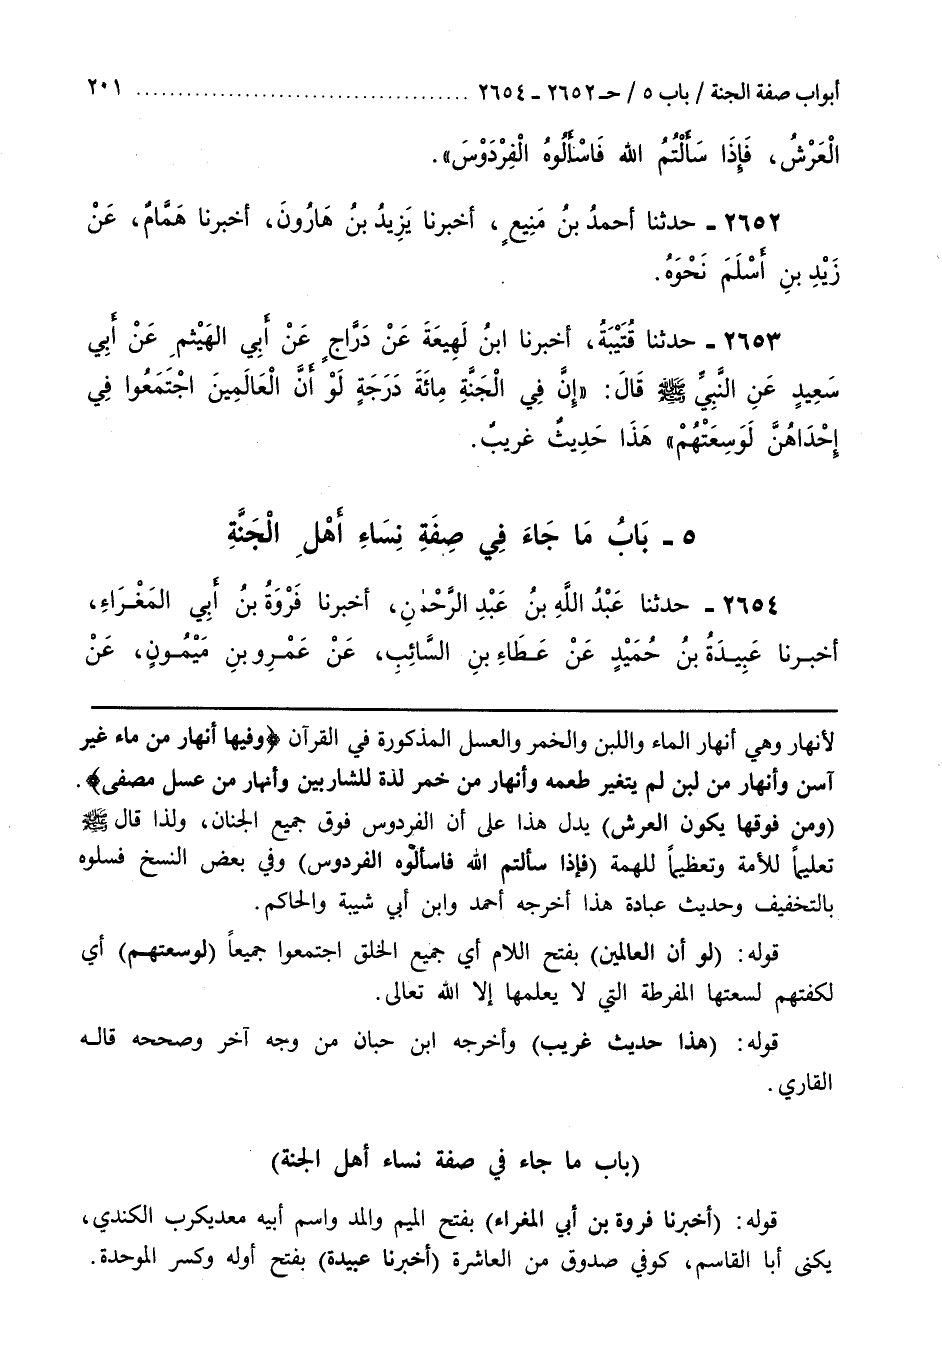 أبواب صفة الجنة / باب ٥ / حـ ٢٦٥٢ - ٢٦٥٤ ..................................... ٢٠١
الْعَرْشُ، فَإِذَا سَأَلْتُمُ الله فَاسْأَلُوهُ الْفِرْدَوْسَ».
٢٦٥٢ - حدثنا أحمدُ بنُ مَنِيعٍ، أخبرنا يَزِيدُ بنُ هَارُونَ، أخبرنا هَمَّامٌ، عَنْ
زَيْدِ بنِ أَسْلَمَ نَحْوَهُ.
٢٦٥٣ - حدثنا قُتَيْبَةُ، أخبرنا ابنُ لَهِيعَةَ عَنْ دَرَّاجٍ عَنْ أَبِي الهَيْثمِ عَنْ أَبِي
سَعِيدٍ عَنِ النَّبِيِّ ﷺ قَالَ: «إِنَّ فِي الْجَنَّةِ مِائَةَ دَرَجَةٍ لَوْ أَنَّ الْعَالَمِينَ اجْتَمَعُوا فِي
إِحْدَاهُنَّ لَوَسِعَتْهُمْ» هَذَا حَدِيثٌ غريبٌ.
٥ - بَابُ مَا جَاءَ فِي صِفَةِ نِسَاءِ أَهْلِ الْجَنَّةِ
٢٦٥٤ - حدثنا عَبْدُ اللَّهِ بنُ عَبْدِ الرَّحْمٰنِ، أخبرنا فَرْوَةُ بنُ أَبِي المَغْرَاءِ،
أخبرنا عَبِيدَةُ بنُ حُمَيْدٍ عَنْ عَطَاءِ بنِ السَّائِبِ، عَنْ عَمْرِو بنِ مَيْمُونٍ، عَنْ
لأنهار وهي أنهار الماء واللبن والخمر والعسل المذكورة في القرآن ﴿وفيها أنهار من ماء غير
آسن وأنهار من لبن لم يتغير طعمه وأنهار من خمر لذة للشاربين وأنهار من عسل مصفى﴾.
(ومن فوقها يكون العرش) يدل هذا على أن الفردوس فوق جميع الجنان، ولذا قال ﷺ
تعليماً للأمة وتعظيماً للهمة (فإذا سألتم الله فاسألوه الفردوس) وفي بعض النسخ فسلوه
بالتخفيف وحديث عبادة هذا أخرجه أحمد وابن أبي شيبة والحاكم.
قوله: (لو أن العالمين) بفتح اللام أي جميع الخلق اجتمعوا جميعاً (لوسعتهم) أي
لكفتهم لسعتها المفرطة التي لا يعلمها إلا الله تعالى.
قوله: (هذا حديث غريب) وأخرجه ابن حبان من وجه آخر وصححه قاله
القاري.
(باب ما جاء في صفة نساء أهل الجنة)
قوله: (أخبرنا فروة بن أبي المغراء) بفتح الميم والمد واسم أبيه معديكرب الكندي،
يكنى أبا القاسم، كوفي صدوق من العاشرة (أخبرنا عبيدة) بفتح أوله وكسر الموحدة.